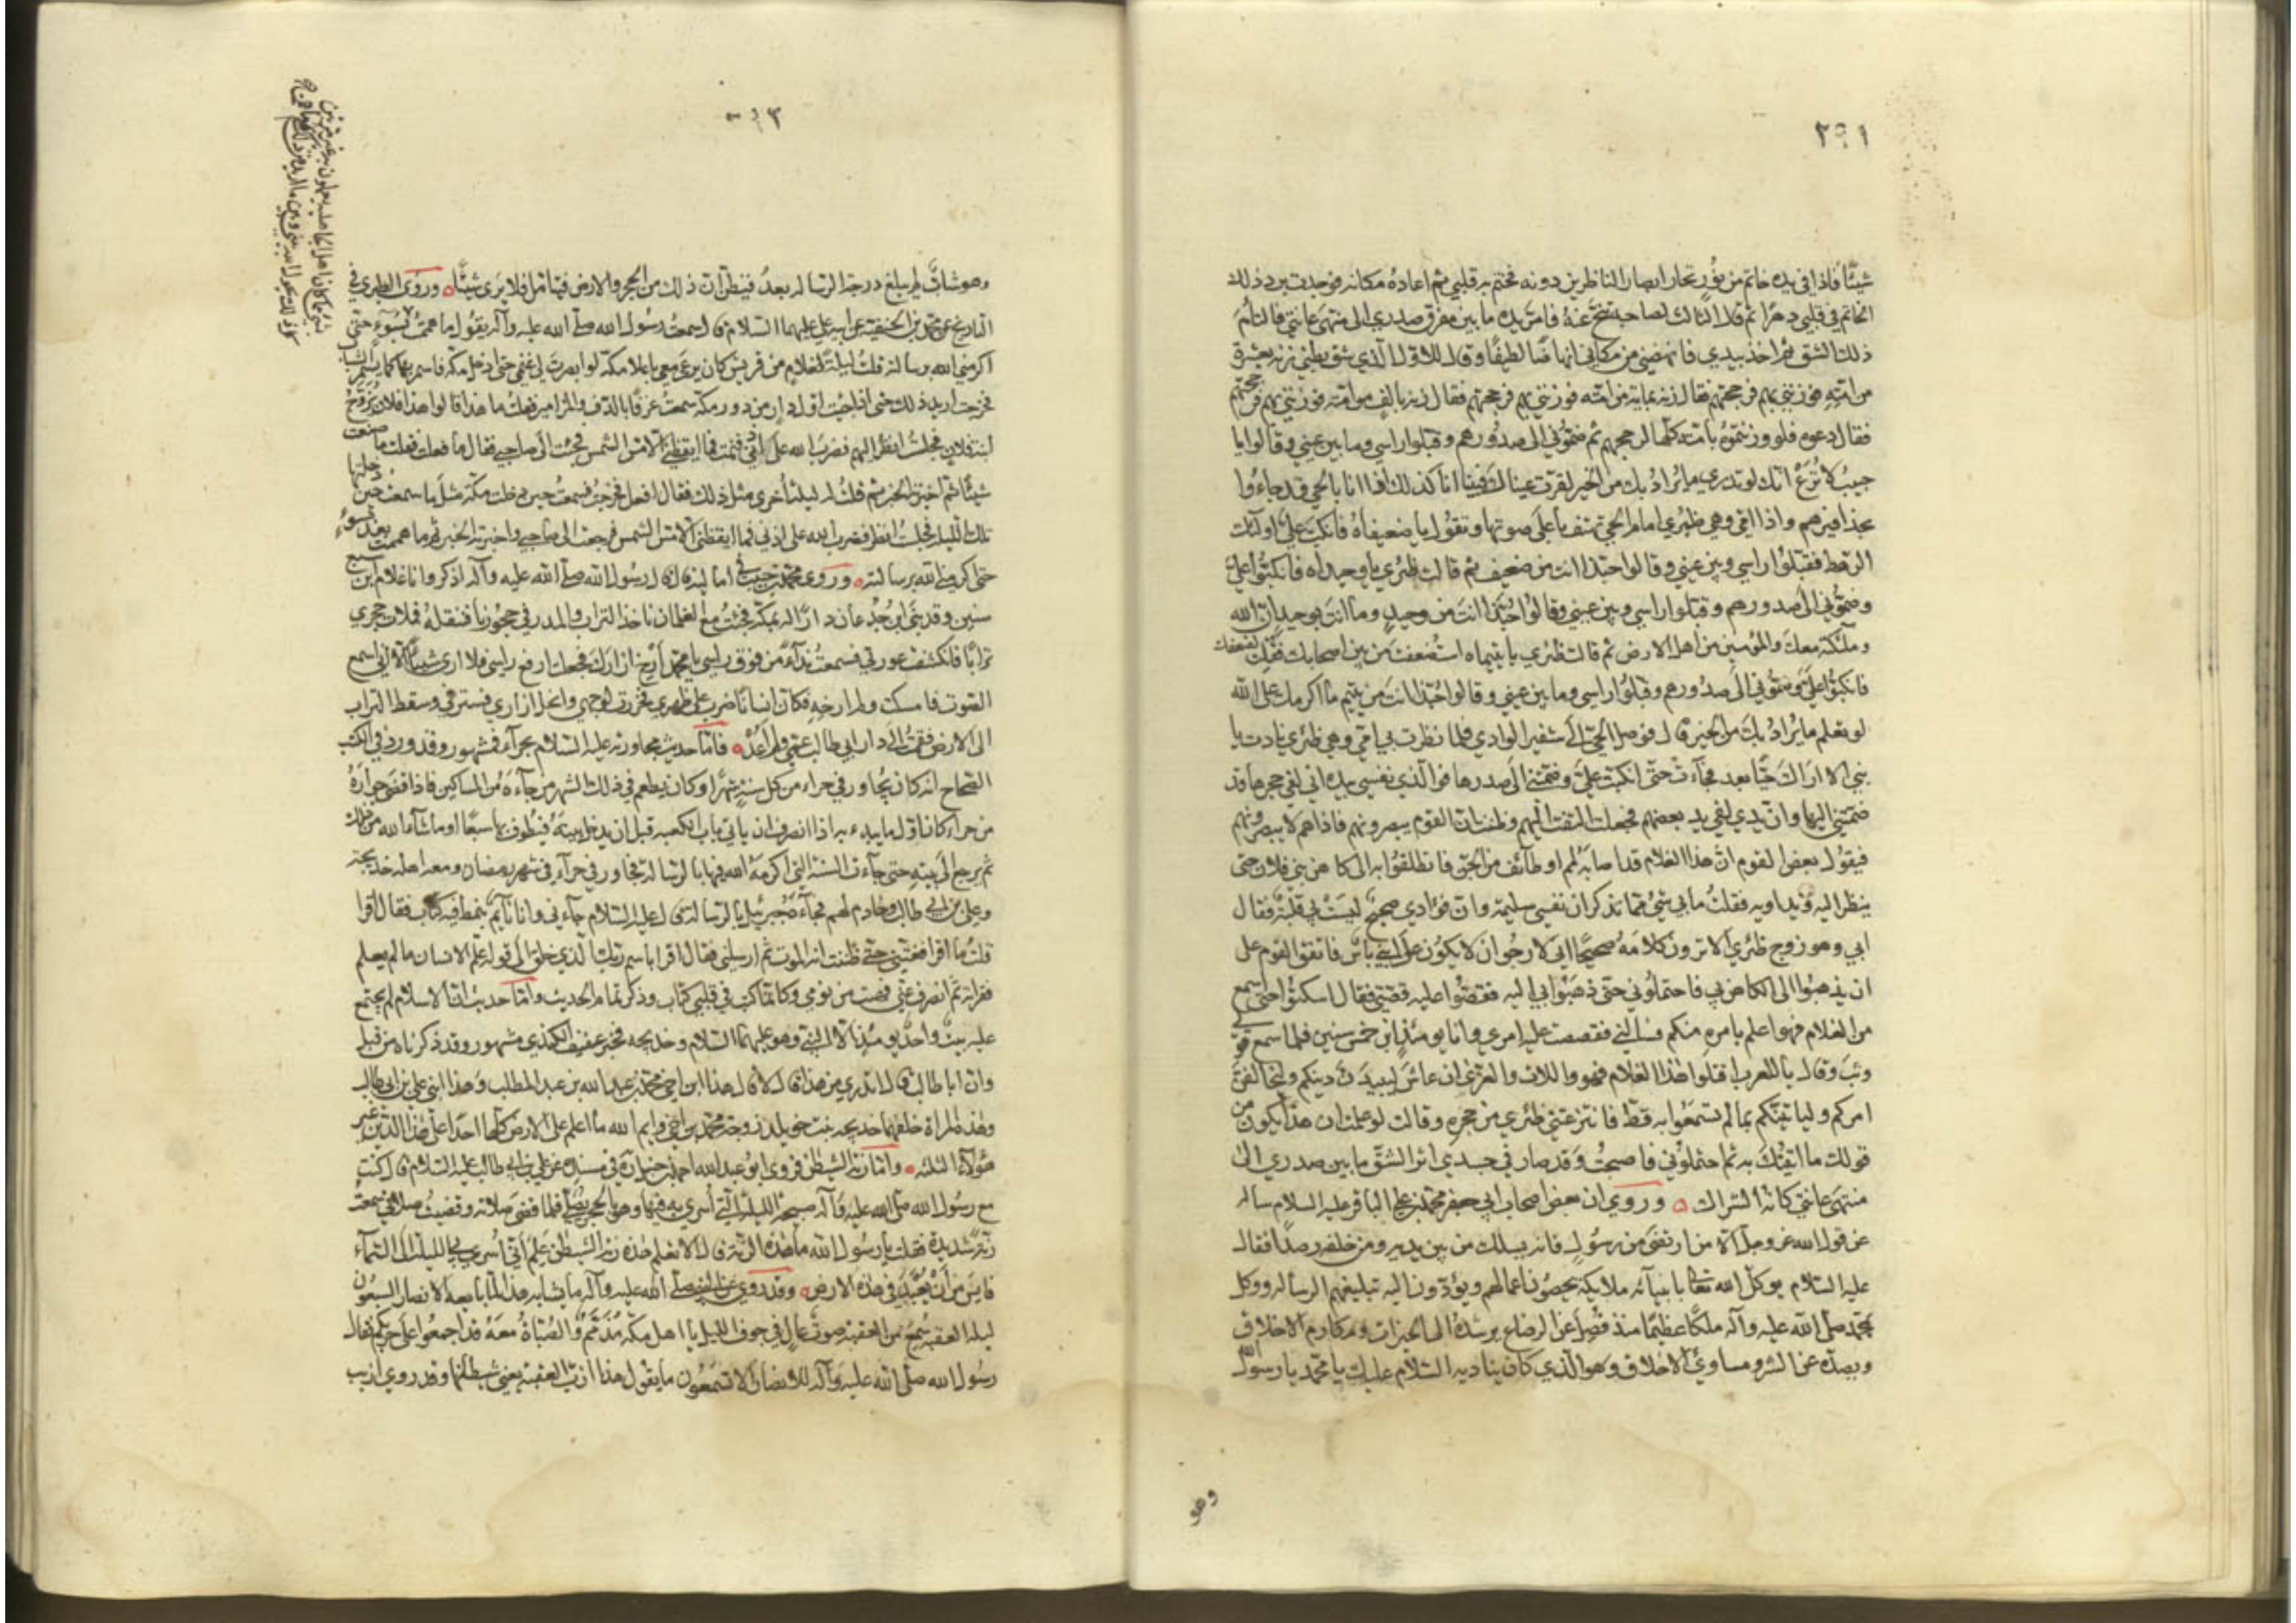 ٢٩١
شيئا فاذا في يده خاتم من نور تحار ابصار الناظرين دونه فختم به قلبي ثم اعاده مكانه فوجدت برد ذلك
الخاتم في قلبي دهرا ثم قال الثالث لصاحبه تنح عنه فامر يده ما بين مفرق صدري الى منتهى عانتي فالتأم
ذلك الشق ثم اخذ بيدي فانهضني من مكاني انهاضا لطيفا وقال للاول الذي شق بطني زنه بعشرة
من امته فوزنني بهم فرجحتهم فقال زنه بماية من امته فوزنني بهم فرجحتهم فقال زنه بالف من امته فوزنني بهم فرجحتهم
فقال دعوه فلو وزنتموه بامته كلها لرجحهم ثم ضموني الى صدورهم وقبلوا راسي وما بين عيني وقالوا يا
حبيب لا ترع انك لو تدري ما يراد بك من الخير لقرت عيناك فبينا انا كذلك اذا انا بالحي قد جاءوا
بحذافيرهم واذا امي وهي ظئري امام الحي تهتف باعلى صوتها وتقول يا ضعيفاه فانكب علي اولئك
الرهط فقبلوا راسي وبين عيني وقالوا حبذا انت من ضعيف ثم قالت ظئري يا وحيداه فانكبوا علي
وضموني الى صدورهم وقبلوا راسي وبين عيني وقالوا حبذا انت من وحيد وما انت بوحيد ان الله
وملئكته معك والمؤمنين من اهل الارض ثم قالت ظئري يا يتيماه استضعفت من بين اصحابك فقتلت لضعفك
فانكبوا علي وضموني الى صدورهم وقبلوا راسي وما بين عيني وقالوا حبذا انت من يتيم ما اكرمك على الله
لو تعلم ما يراد بك من الخير قال فوصل الحي الى شفير الوادي فلما نظرت بي امي وهي ظئري نادت يا
بني الا اراك حيا بعد فجاءت حتى انكبت علي وضمتني الى صدرها فوالذي نفسي بيده اني لفي حجرها قد
ضمتني اليها وان يدي لفي يد بعضهم فجعلت التفت اليهم وظننت ان القوم يبصرونهم فاذا هم لا يبصرونهم
فيقول بعض القوم ان هذا الغلام قد اصابه لمم او طائف من الجن فانطلقوا به الى كاهن بني فلان حتى
ينظر اليه ويداويه فقلت ما بي شيء مما تذكر ان نفسي سليمة وان فؤادي صحيح ليست بي قلبة فقال
ابي وهو زوج ظئري الا ترون كلامه صحيحا اني لارجو ان لا يكون على ابني باس فاتفق القوم على
ان يذهبوا الى الكاهن بي فاحتملوني حتى ذهبوا بي اليه فقصوا عليه قصتي فقال اسكتوا حتى اسمع
من الغلام فهو اعلم بامره منكم فسالني فقصصت عليه امري وانا يومئذ ابن خمس سنين فلما سمع قولي
وثب وقال يا للعرب اقتلوا هذا الغلام فهو واللات والعزى ان عاش ليبدلن دينكم وليخالفن
امركم ولياتينكم بما لم تسمعوا به قط فانتزعتني ظئري من حجره وقالت لو علمت ان هذا يكون من
قولك ما اتيتك به ثم احتملوني فاصبحت وقد صار في جسدي اثر الشق ما بين صدري الى
منتهى عانتي كانه الشراك وروي ان بعض اصحاب ابي جعفر محمد بن علي الباقر عليه السلام ساله
عن قول الله عز وجل الا من ارتضى من رسول فانه يسلك من بين يديه ومن خلفه رصدا فقال
عليه السلام يوكل الله تعالى بانبيائه ملايكة يحصون اعمالهم ويؤدون اليه تبليغهم الرسالة ووكل
بمحمد صلى الله عليه وآله ملكا عظيما منذ فصل عن الرضاع يرشده الى الخيرات ومكارم الاخلاق
ويصده عن الشر ومساوئ الاخلاق وهو الذي كان يناديه السلام عليك يا محمد يا رسول الله
وهو
وهو شاب لم يبلغ درجة الرسالة بعد فيظن ان ذلك من الحجر والارض فيتامل فلا يرى شيئا وروى الطبري في
التاريخ عن محمد بن الحنفية عن ابيه علي عليهما السلام قال سمعت رسول الله صلى الله عليه وآله يقول ما هممت بسوء حتى
اكرمني الله برسالته قلت ليلة لغلام من قريش كان يرعى معي باعلا مكة لو ابصرت لي غنمي حتى ادخل مكة فاسمر بها كما يسمر الشباب
فخرجت اريد ذلك حتى اذا جئت اول دار من دور مكة سمعت عزفا بالدف والمزامير فقلت ما هذا قالوا هذا فلان تزوج
ابنة فلان فجلست انظر اليهم فضرب الله على اذني فنمت فما ايقظني الا مس الشمس فجئت الى صاحبي فقال ما فعلت فقلت ما صنعت
شيئا ثم اخبرته الخبر ثم قلت له ليلة اخرى مثل ذلك فقال افعل فخرجت فسمعت حين دخلت مكة مثل ما سمعت حين دخلتها
تلك الليلة فجلست انظر فضرب الله على اذني فما ايقظني الا مس الشمس فرجعت الى صاحبي واخبرته الخبر ثم ما هممت بعدها بسوء
حتى اكرمني الله برسالته وروى محمد بن حبيب في اماليه قال قال رسول الله صلى الله عليه وآله اذكر وانا غلام ابن سبع
سنين وقد بنى ابن جدعان دارا له بمكة فجئت مع الغلمان ناخذ التراب والمدر في حجورنا فننقله فملات حجري
ترابا فانكشفت عورتي فسمعت نداء من فوق راسي يا محمد ارخ ازارك فجعلت ارفع راسي فلا ارى شيئا الا اني اسمع
الصوت فامسكت ولم ارخه فكان انسانا ضرب على ظهري فخررت لوجهي وانحل ازاري فسترني وسقط التراب
الى الارض فقمت الى دار ابي طالب عمي ولم اعد فاما حديث مجاورته عليه السلام بحراء فمشهور وقد ورد في الكتب
الصحاح انه كان يجاور في حراء من كل سنة شهرا وكان يطعم في ذلك الشهر من جاءه من المساكين فاذا قضى جواره
من حراء كان اول ما يبدء به اذا انصرف ان ياتي باب الكعبة قبل ان يدخل بيته فيطوف بها سبعا او ما شاء الله من ذلك
ثم يرجع الى بيته حتى جاءت السنة التي اكرمه الله فيها بالرسالة فجاور في حراء في شهر رمضان ومعه اهله خديجة
وعلي بن ابي طالب وخادم لهم فجاءه جبرئيل بالرسالة قال عليه السلام جاءني وانا نائم بنمط فيه كتاب فقال اقرا
قلت ما اقرا فغتني حتى ظننت انه الموت ثم ارسلني فقال اقرا باسم ربك الذي خلق الى قوله علم الانسان ما لم يعلم
فقراته ثم انصرف عني فهببت من نومي وكانما كتب في قلبي كتاب وذكر تمام الحديث واما حديث ان الاسلام لم يجتمع
عليه بيت واحد يومئذ الا النبي وهو عليهما السلام وخديجة فخبر عفيف الكندي مشهور وقد ذكرناه من قبل
وان ابا طالب قال اتدري من هذا قال لا قال هذا ابن اخي محمد بن عبد الله بن عبد المطلب وهذا ابني علي بن ابي طالب
وهذه المراة خلفهما خديجة بنت خويلد زوجة محمد بن اخي وايم الله ما اعلم على الارض كلها احدا على هذا الدين غير
هؤلاء الثلثة واما رنة الشيطان فروى ابو عبد الله احمد بن حنبل في مسنده عن علي بن ابي طالب عليه السلام قال كنت
مع رسول الله صلى الله عليه وآله صبيحة الليلة التي اسري به فيها وهو بالحجر يصلي فلما قضى صلاته وقضيت صلاتي سمعت
رنة شديدة فقلت يا رسول الله ما هذه الرنة قال الا تعلم هذه رنة الشيطان علم اني اسري بي الليلة الى السماء
فايس من ان يعبد في هذه الارض وقد روي عن النبي صلى الله عليه وآله ما يشابه هذا لما بايعه الانصار السبعون
ليلة العقبة سمع من العقبة صوت عال في جوف الليل يا اهل مكة مذمم والصباة معه قد اجمعوا على حربكم فقال
رسول الله صلى الله عليه وآله للانصار الا تسمعون ما يقول هذا ازب العقبة يعني شيطانها وقد روي ازيب